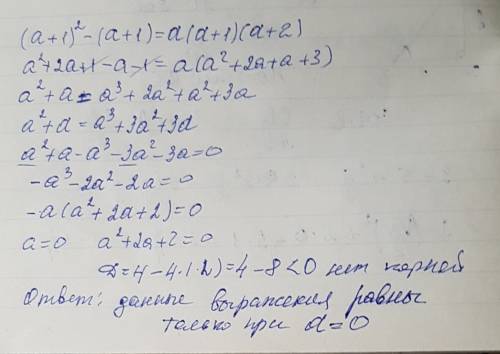 (a+1)²-(a+1)=a(a+1)(a+2)
a²+2a+1-a-1=a(a²+2a+a+3)
a²+a=a³+2a²+a²+3a
a²+a=a³+3a²+3a
a²+a-a³-3a²-3a=0
-a³-2a²-2a=0
-a(a²+2a+2)=0
a=0 a²+2a+2=0
D=4-4·1·2)=4-8<0 нет корней
Ответ: данные выражения равны
только при a=0